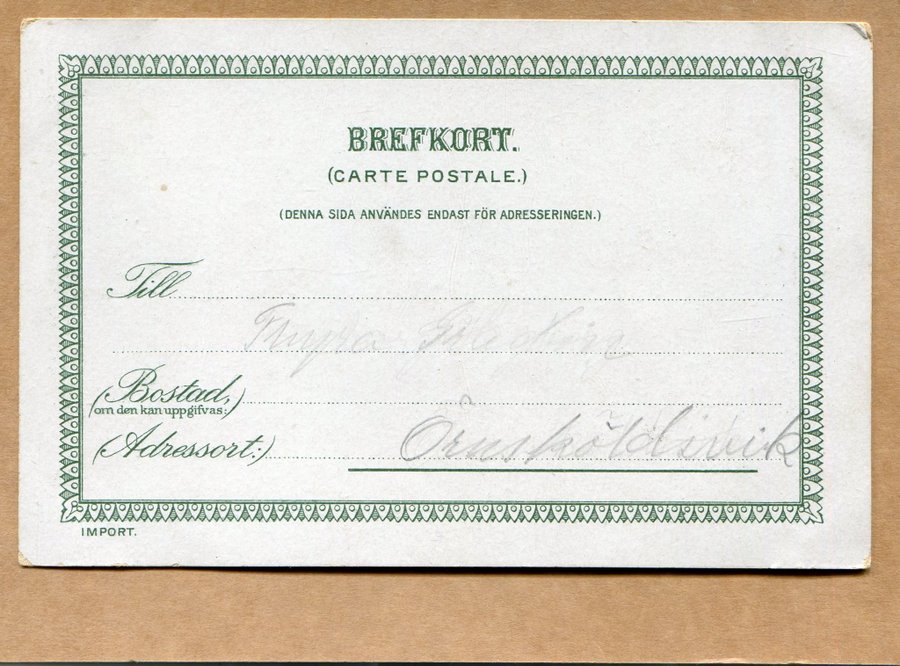 BREFKORT.
(CARTE POSTALE.)
(DENNA SIDA ANVÄNDES ENDAST FÖR ADRESSERINGEN.)
Till
(Bostad,
om den kan uppgifvas:)
(Adressort:) Örnsköldsvik
IMPORT.